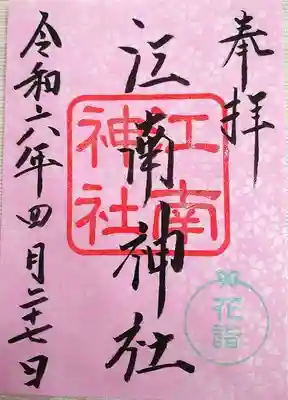 奉拝
江南神社
江南
神社
花詣
令和六年四月二十七日